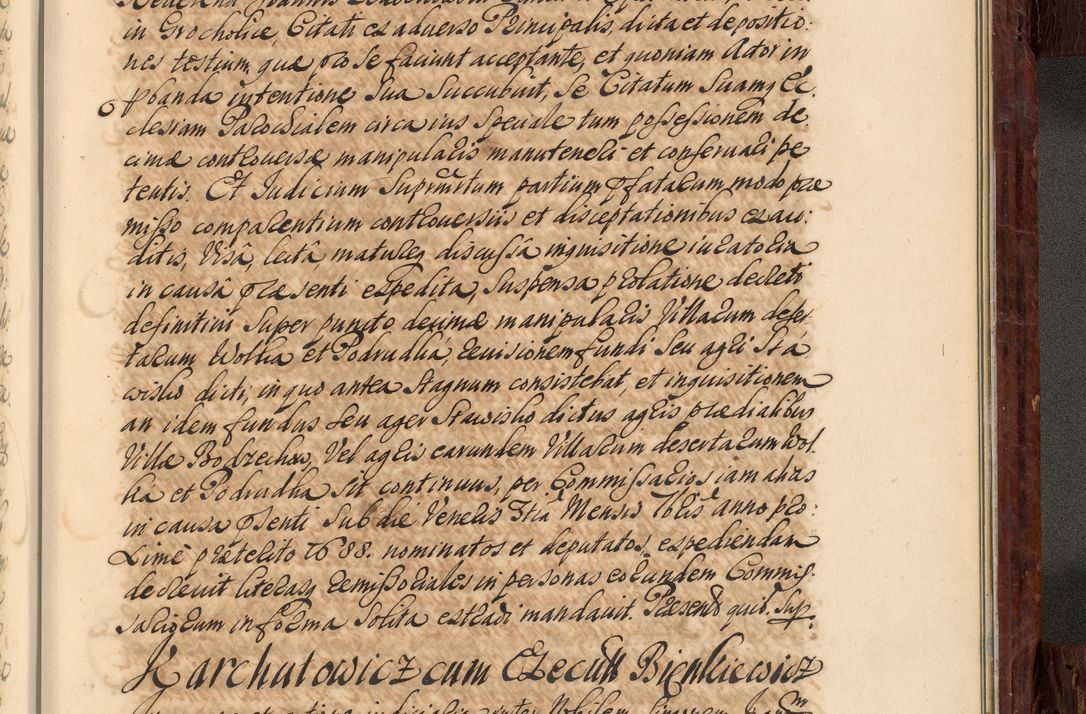 in Grocholice, Citati ex adverso Principalis, dicta et depositio:
nes testium, quæ pro se faciunt acceptante, et quoniam Actor in
pbanda intentione sua succubuit, se Citatum suamq Ec:
clesiam Parochialem circa ius speciale tum possessionem de
cimæ controversæ manipularis manuteneri et conservari pe
tentis. Et Judicium Supmtum partium pfatarum modo præ
misso comparentium controversiis et disceptationibus exau:
ditis, Visâ, lectâ, matureq discussâ inquisitione iuratoria
in causâ præsenti expedita, suspensa prolatione decreti
definitivi super puncto decimæ manipularis Villarum deser
tarum Wolka et Podrudka, revisionem fundi seu agri Sta
wisko dicti, in quo antea stagnum consistebat, et inquisitionem
an idem fundus seu ager Stawisko dictus agris prædialibus
Villæ Bodzechow, Vel agris earundem Villarum desertarum Wol
ka et Podrudka sit continuus, per Commissarios iam alias
in causa psenti sub die Veneris 3tia Mensis 7bris anno pro:
xime præterito 1688. nominatos et deputatos, expediendam
decrevit literasq remissoriales in personas eorundem Commis:
sariorum in forma solita extradi mandavit. Præsentib quib. sup.
Karchutowicz cum Execut Bienkiewicz